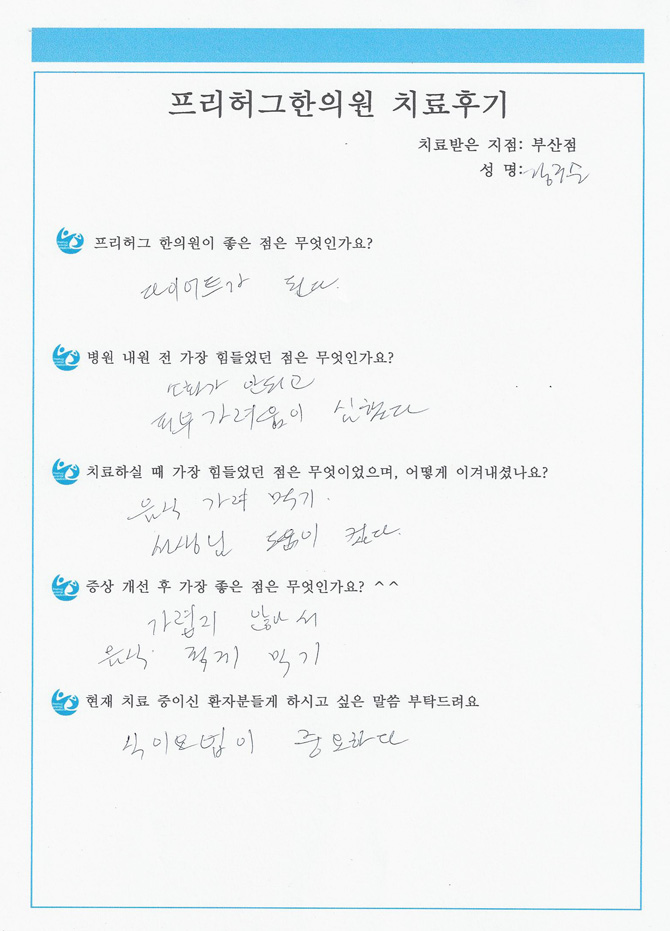 프리허그한의원 치료후기
치료받은 지점: 부산점
성 명:
프리허그 한의원이 좋은 점은 무엇인가요?
다이어트가 된다.
병원 내원 전 가장 힘들었던 점은 무엇인가요?
소화가 안되고
피부 가려움이 심했다
치료하실 때 가장 힘들었던 점은 무엇이었으며, 어떻게 이겨내셨나요?
음식 가려 먹기.
선생님 도움이 컸다.
증상 개선 후 가장 좋은 점은 무엇인가요? ^^
가렵지 않아서
음식. 적게 먹기
현재 치료 중이신 환자분들게 하시고 싶은 말씀 부탁드려요
식이요법이 중요하다